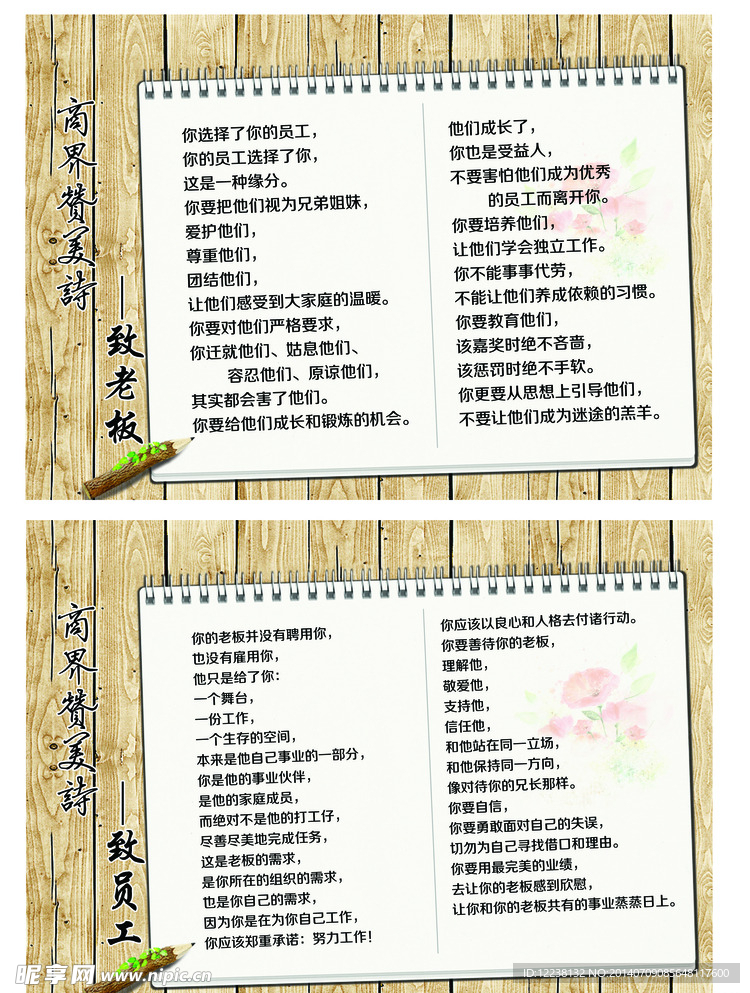 商界赞美詩
——致老板
你选择了你的员工，
你的员工选择了你，
这是一种缘分。
你要把他们视为兄弟姐妹，
爱护他们，
尊重他们，
团结他们，
让他们感受到大家庭的温暖。
你要对他们严格要求，
你迁就他们、姑息他们、
容忍他们、原谅他们，
其实都会害了他们。
你要给他们成长和锻炼的机会。
他们成长了，
你也是受益人，
不要害怕他们成为优秀
的员工而离开你。
你要培养他们，
让他们学会独立工作。
你不能事事代劳，
不能让他们养成依赖的习惯。
你要教育他们，
该嘉奖时绝不吝啬，
该惩罚时绝不手软。
你更要从思想上引导他们，
不要让他们成为迷途的羔羊。
商界赞美詩
——致员工
你的老板并没有聘用你，
也没有雇用你，
他只是给了你：
一个舞台，
一份工作，
一个生存的空间，
本来是他自己事业的一部分，
你是他的事业伙伴，
是他的家庭成员，
而绝对不是他的打工仔，
尽善尽美地完成任务，
这是老板的需求，
是你所在的组织的需求，
也是你自己的需求，
因为你是在为你自己工作，
你应该郑重承诺：努力工作！
你应该以良心和人格去付诸行动。
你要善待你的老板，
理解他，
敬爱他，
支持他，
信任他，
和他站在同一立场，
和他保持同一方向，
像对待你的兄长那样。
你要自信，
你要勇敢面对自己的失误，
切勿为自己寻找借口和理由。
你要用最完美的业绩，
去让你的老板感到欣慰，
让你和你的老板共有的事业蒸蒸日上。
昵享网 www.nipic.cn
ID:12238132 NO:20140709085648117600